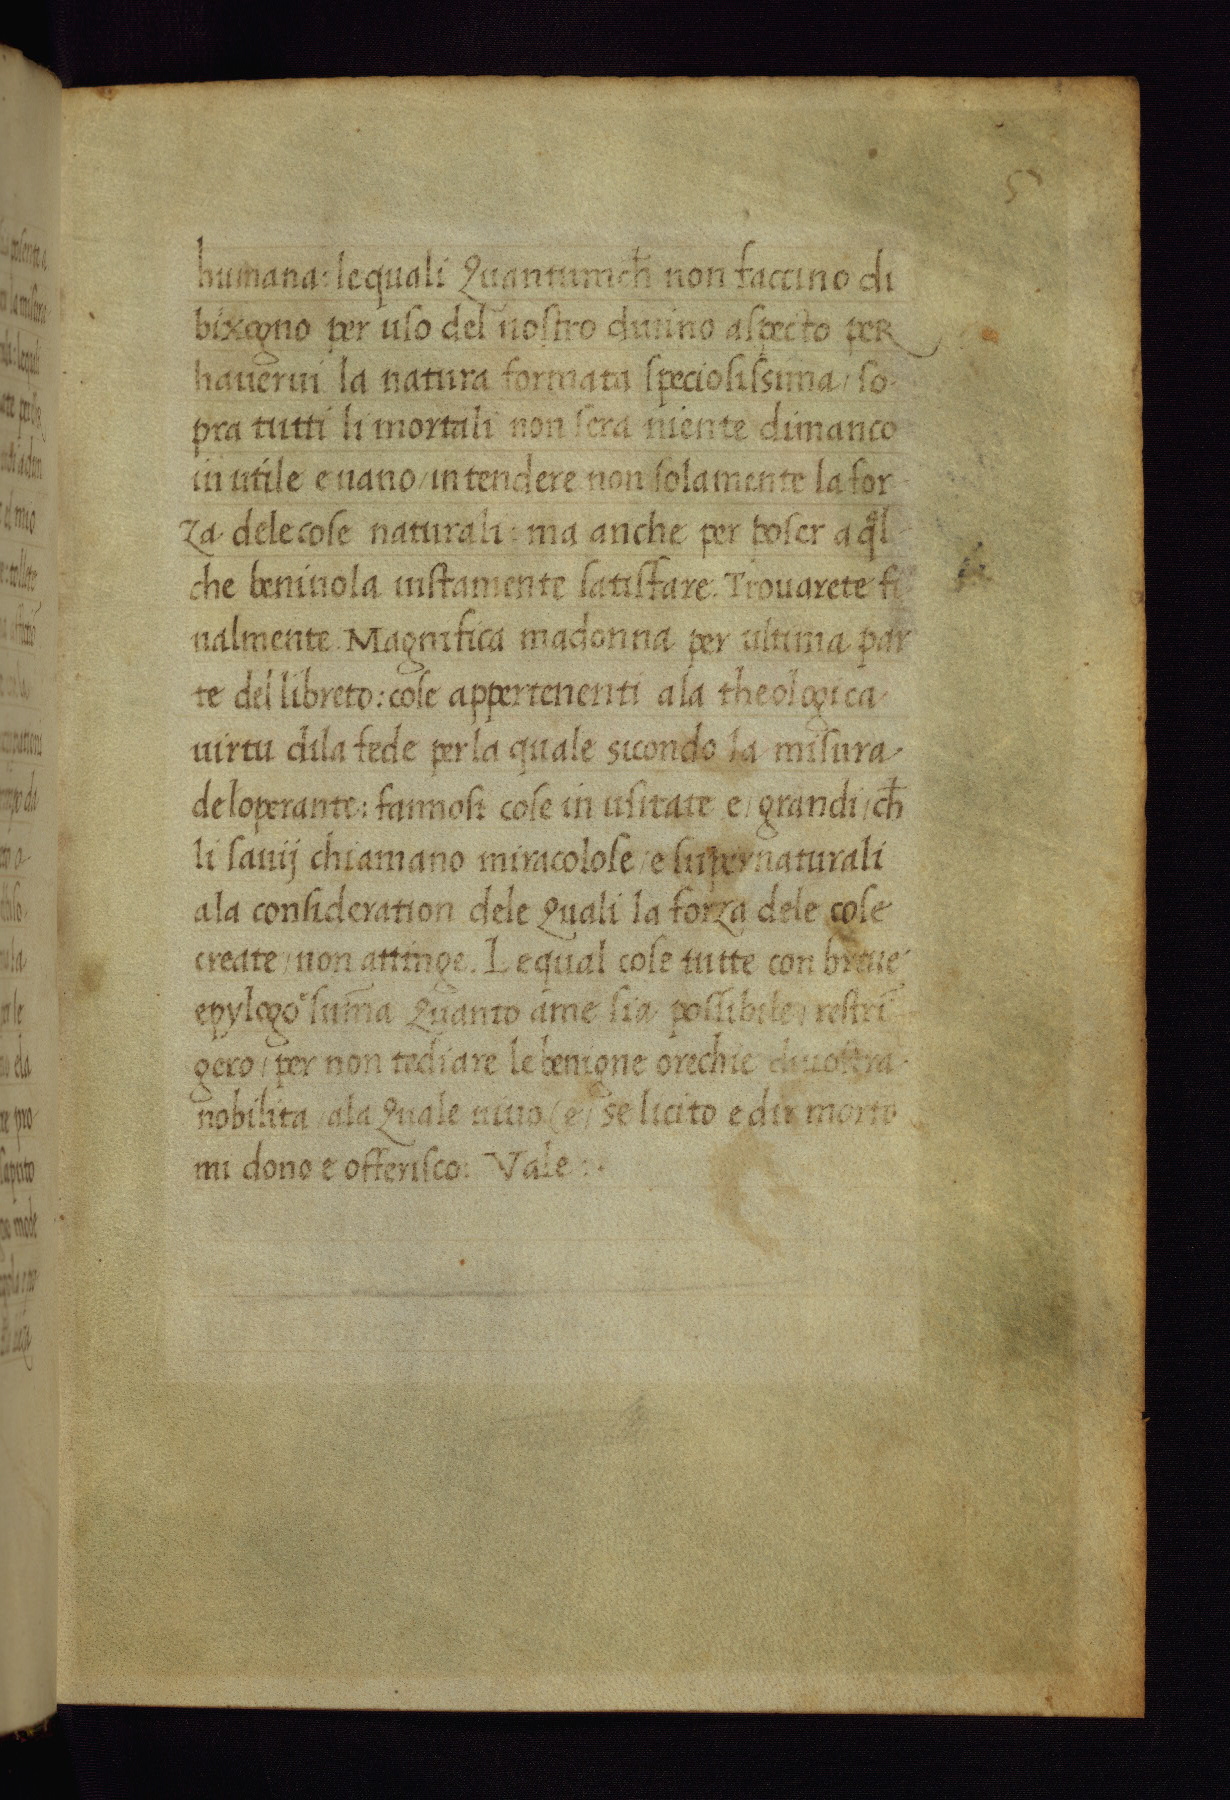 5
humana: lequali Quantumch̄ non faccino di
bixogno per uso del uostro diuino aspecto per
hauerui la natura formata speciosissima / so
pra tutti li mortali non sera niente dimanco
in utile e uano / intendere non solamente la for
za dele cose naturali: ma anche per poser a q̄l
che beniuola iustamente satisfare. Trouarete fi
nalmente. Magnifica madonna per ultima par
te del libreto: cose appertenenti ala theologica
uirtu dila fede per la quale sicondo la misura
de loperante: fannosi cose in usitate e / grandi / ch̄
li sauij chiamano miracolose / e supernaturali
ala consideration dele Quali la forza dele cose
create / non attinge. Lequal cose tutte con breue
epylogo suma Quanto ame sia possibile / restrī
gero / per non tediare le benigne orechie diuostra
nobilita / ala Quale uiuo (e / se licito e dir morto
mi dono e offerisco: Vale :